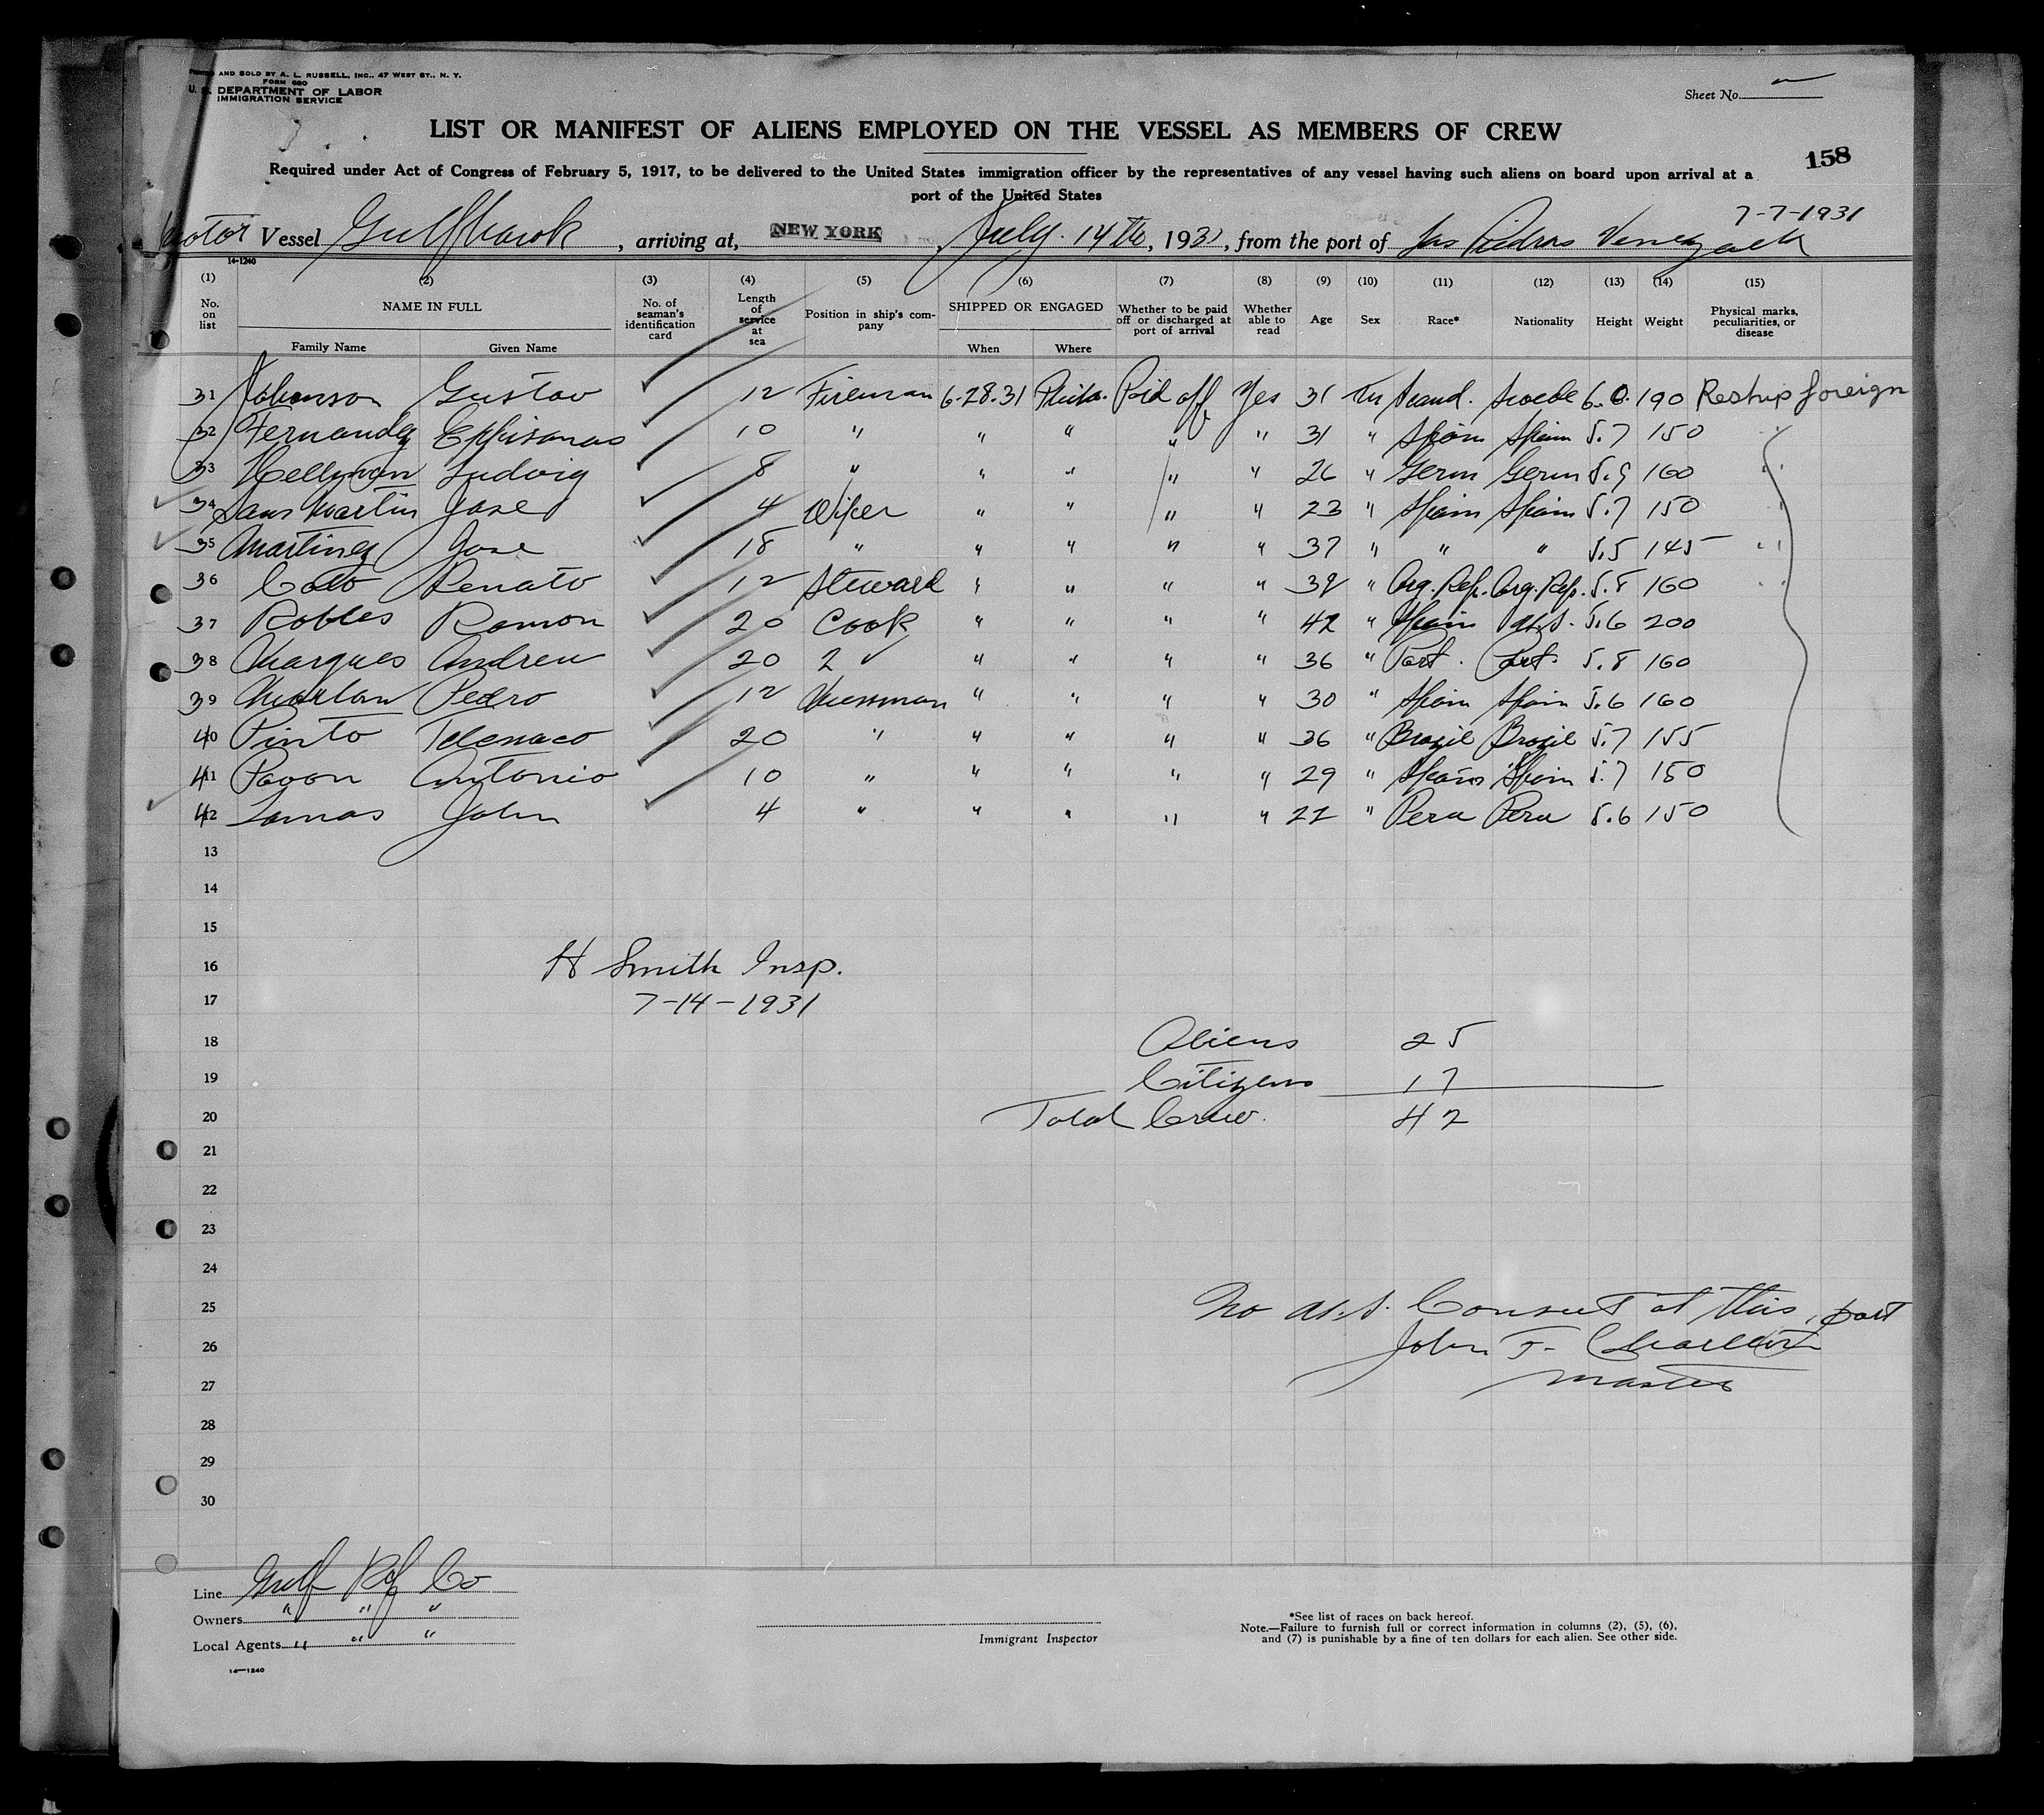 PRINTED AND SOLD BY A. L. RUSSELL, INC., 47 WEST ST., N. Y.
FORM 680
U. S. DEPARTMENT OF LABOR
IMMIGRATION SERVICE
Sheet No.
LIST OR MANIFEST OF ALIENS EMPLOYED ON THE VESSEL AS MEMBERS OF CREW
158
Required under Act of Congress of February 5, 1917, to be delivered to the United States immigration officer by the representatives of any vessel having such aliens on board upon arrival at a
port of the United States
7-7-1931
Motor Vessel Gulfhawk, arriving at, NEW YORK, July 14th, 1931, from the port of Las Piedras Venezuela
14-1240
(1) (2) (3) (4) (5) (6) (7) (8) (9) (10) (11) (12) (13) (14) (15)
No. on list NAME IN FULL Family Name Given Name No. of seaman's identification card Length of service at sea Position in ship's company SHIPPED OR ENGAGED When Where Whether to be paid off or discharged at port of arrival Whether able to read Age Sex Race* Nationality Height Weight Physical marks, peculiarities, or disease
31 Johanson Gustav 12 Fireman 6-28-31 Phila. Paid off Yes 31 M Scand. Swede 6.0. 190 Reship foreign
32 Fernandez 10 " " " " " 31 " Spain Spain 5.7 150 "
33 Ludwig 8 " " " " " 26 " Germ Germ 5.9 160 "
34 San Martin Jose 4 Wiper " " " " 23 " Spain Spain 5.7 150 "
35 Martinez Jose 18 " " " " " 37 " " " 5.5 145 "
36 Renato 12 Steward " " " " " Arg. Rep. Arg. Rep. 5.8 160 "
37 Robles Ramon 20 Cook " " " " 42 " Spain U.S. 5.6 200
38 Marques Andrew 20 2 " " " " " 36 " Port. Port. 5.8 160
39 Pedro 12 Messman " " " " 30 " Spain Spain 5.6 160
40 Pinto Telemaco 20 " " " " " 36 " Brazil Brazil 5.7 155
41 Pavon Antonio 10 " " " " " 29 " Spain Spain 5.7 150
42 Lamas John 4 " " " " " 22 " Peru Peru 5.6 150
13
14
15
16 H Smith Insp.
17 7-14-1931
18 Aliens 25
19 Citizens 17
20 Total Crew. 42
21
22
23
24
25 No U.S. Consul at this port
26 John T.
27 Master
28
29
30
Line Gulf Rfg Co
Owners " " "
Local Agents " " "
Immigrant Inspector
*See list of races on back hereof.
Note.—Failure to furnish full or correct information in columns (2), (5), (6),
and (7) is punishable by a fine of ten dollars for each alien. See other side.
14-1240